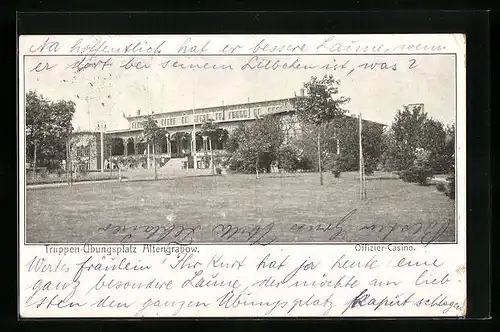 Na hoffentlich hat er bessere Laune, wenn
er dort bei seinem Liebchen ist, was?
Truppen-Übungsplatz Altengrabow.
Offizier-Casino.
Wertes Fräulein Ihr Kurt hat ja heute eine
ganz besondere Laune, der möchte am lieb-
sten den ganzen Übungsplatz kaput schlagen